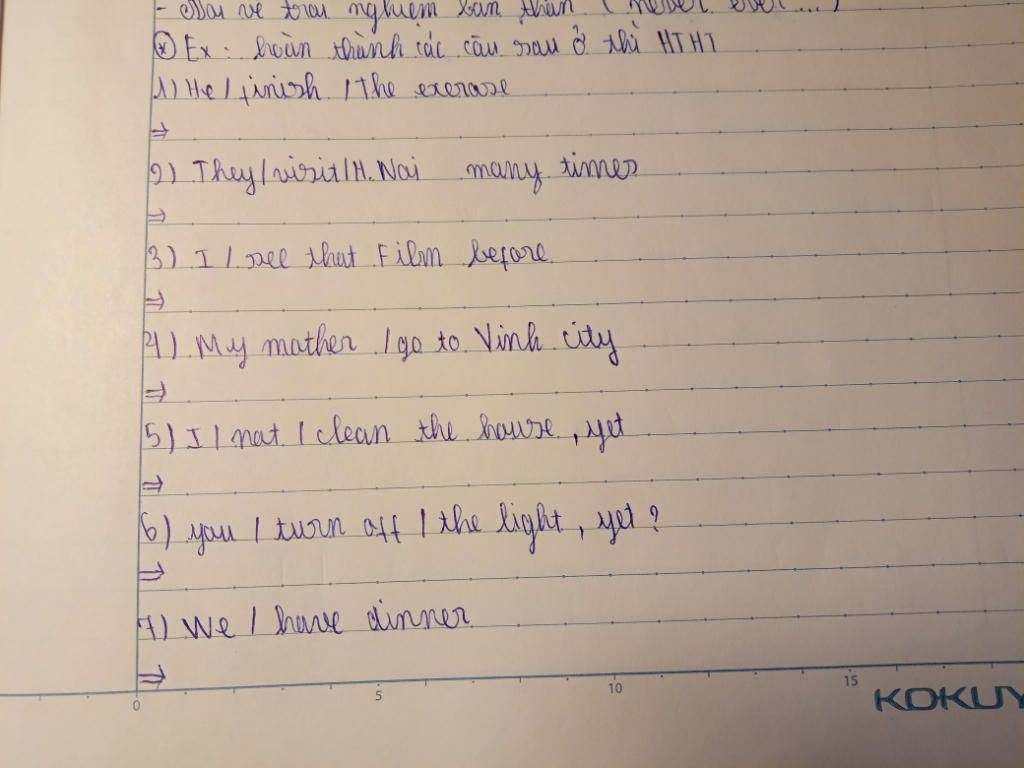 - về trải nghiệm bản thân ( never ever ... )
* Ex : hoàn thành các câu sau ở thì HTHT
1) He / finish / The exercise
⇒
2) They / visit / H. Nai many times
⇒
3) I / see that Film before
⇒
4) My mather / go to Vinh city
⇒
5) I / not / clean the house , yet
⇒
6) you / turn off / the light , yet ?
⇒
7) We / have dinner
⇒
0 5 10 15 KOKUY